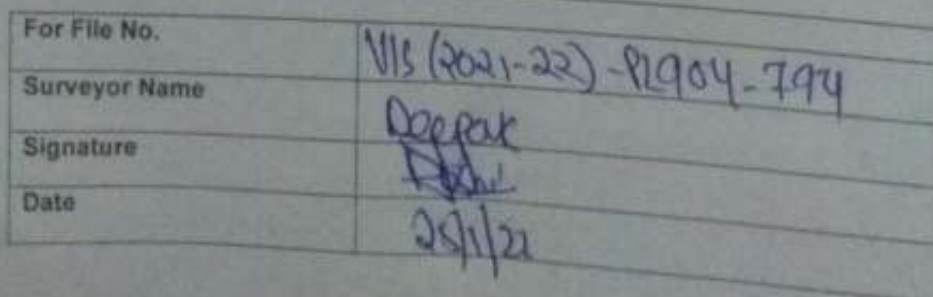 For File No. VIS (2021-22)-PL904-794
Surveyor Name Deepak
Signature
Date 25/1/22